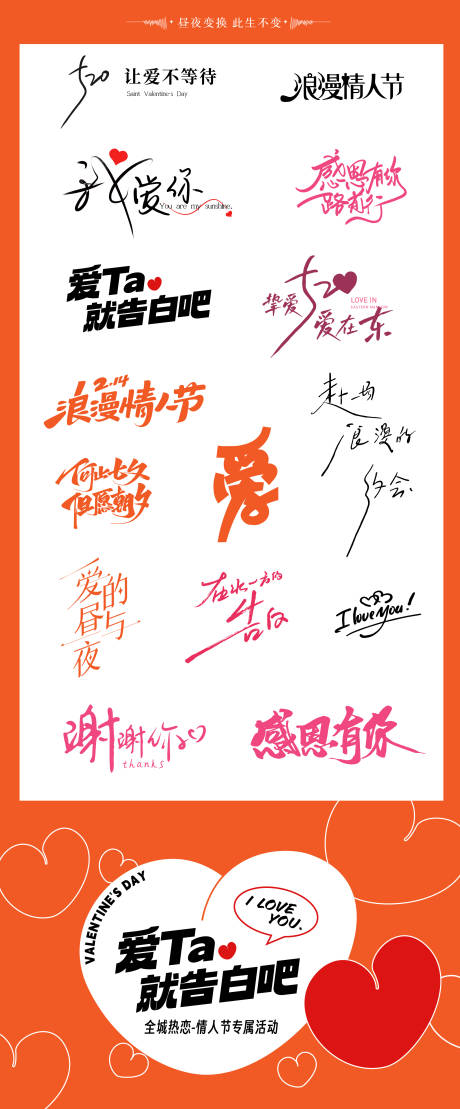 昼夜变换 此生不变
520 让爱不等待
Saint Valentine's Day
浪漫情人节
我爱你
You are my sunshine.
感恩有你
一路前行
爱Ta
就告白吧
挚爱520
LOVE IN
爱在东
2.14
浪漫情人节
赴一场
浪漫的
约会
何止七夕
但愿朝夕
爱
爱的
昼与
夜
在水一方的
告白
I love you!
谢谢你
thanks
感恩有你
VALENTINE'S DAY
I LOVE
YOU.
爱Ta
就告白吧
全城热恋-情人节专属活动